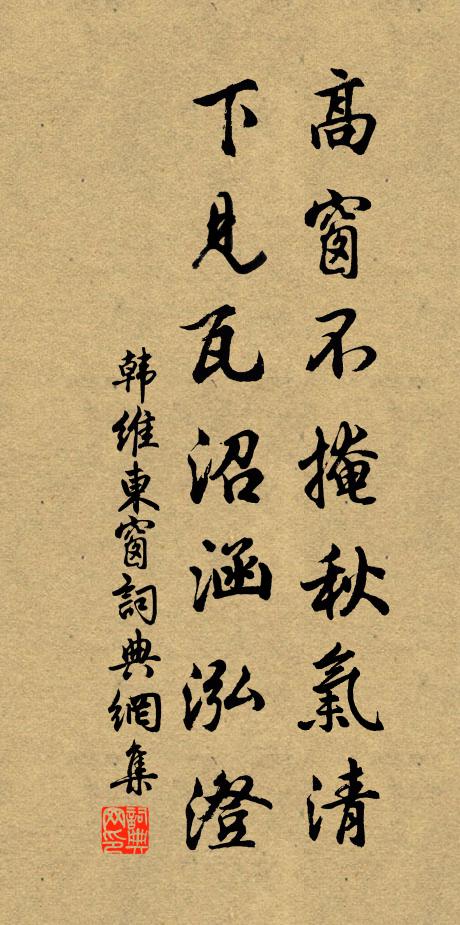 高窗不掩秋氣清
下見瓦沼涵泓澄
韩維東窗詞典網集
詞典網印